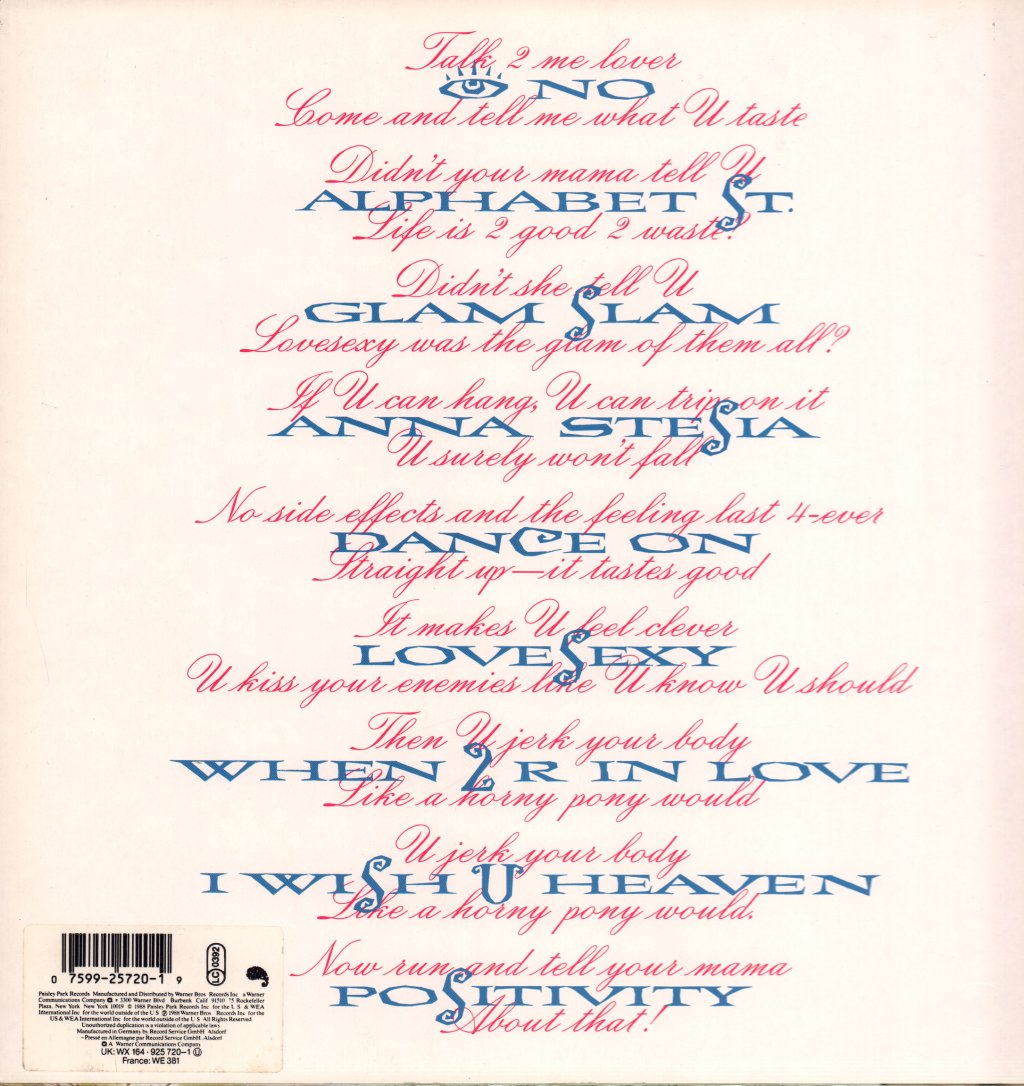 Talk 2 me lover
NO
Come and tell me what U taste
Didn't your mama tell U
ALPHABET ST.
Life is 2 good 2 waste?
Didn't she tell U
GLAM SLAM
Lovesexy was the glam of them all?
If U can hang, U can trip on it
ANNA STESIA
U surely won't fall
No side effects and the feeling last 4-ever
DANCE ON
Straight up—it tastes good
It makes U feel clever
LOVESEXY
U kiss your enemies like U know U should
Then U jerk your body
WHEN 2 R IN LOVE
Like a horny pony would
U jerk your body
I WISH U HEAVEN
Like a horny pony would.
Now run and tell your mama
POSITIVITY
About that!
0 7599-25720-1 9
LC 0392
Paisley Park Records Manufactured and Distributed by Warner Bros Records Inc a Warner
Communications Company • 3300 Warner Blvd Burbank Calif 91510 75 Rockefeller
Plaza, New York New York 10019 © 1988 Paisley Park Records Inc for the U S & WEA
International Inc for the world outside of the U S ℗ 1988 Warner Bros Records Inc for the
US & WEA International Inc for the world outside of the U S All Rights Reserved
Unauthorized duplication is a violation of applicable laws
Manufactured in Germany by Record Service GmbH Alsdorf
– Pressé en Allemagne par Record Service GmbH, Alsdorf
A Warner Communications Company
UK: WX 164 · 925 720-1 Ⓤ
France: WE 381